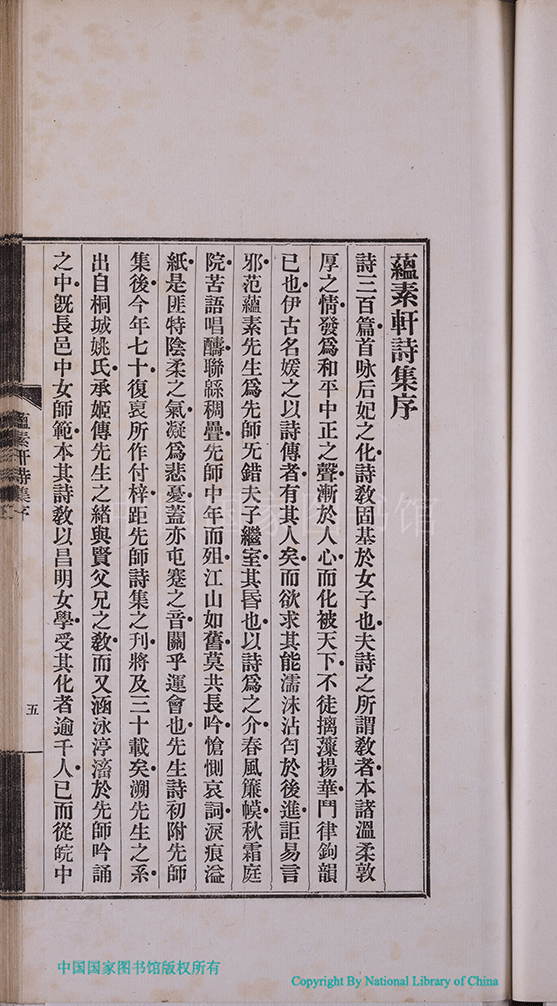 蘊素軒詩集序
詩三百篇首咏后妃之化詩敎固基於女子也夫詩之所謂敎者本諸溫柔敦
厚之情發爲和平中正之聲漸於人心而化被天下不徒摛藻揚華鬥律鉤韻
已也伊古名媛之以詩傳者有其人矣而欲求其能濡沫沾匄於後進詎易言
邪范蘊素先生爲先師旡錯夫子繼室其昏也以詩爲之介春風簾幙秋霜庭
院苦語唱醻聯緜稠疊先師中年而殂江山如舊莫共長吟愴惻哀詞淚痕溢
紙是匪特陰柔之氣凝爲悲憂蓋亦屯蹇之音關乎運會也先生詩初附先師
集後今年七十復裒所作付梓距先師詩集之刊將及三十載矣溯先生之系
出自桐城姚氏承姬傳先生之緒與賢父兄之敎而又涵泳渟滀於先師吟誦
之中旣長邑中女師範本其詩敎以昌明女學受其化者逾千人已而從皖中
蘊素軒詩集序
五
中国国家图书馆
中国国家图书馆版权所有
Copyright By National Library of China